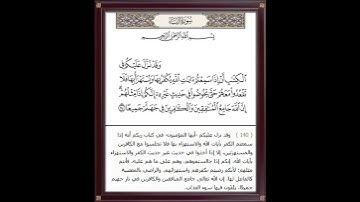 سورة النساء
بسم الله الرحمن الرحيم
وقد نزل عليكم في
الكتب أن إذا سمعتم ءايت الله يكفر بها ويستهزأ بها فلا
تقعدوا معهم حتى يخوضوا في حديث غيره إنكم إذا مثلهم
إن الله جامع المنفقين والكفرين في جهنم جميعا ١٤٠
(140) وقد نزل عليكم -أيها المؤمنون- في كتاب ربكم أنه إذا
سمعتم الكفر بآيات الله والاستهزاء بها فلا تجلسوا مع الكافرين
والمستهزئين، إلا إذا أخذوا في حديث غير حديث الكفر والاستهزاء
بآيات الله. إنكم إذا جالستموهم، وهم على ما هم عليه، فأنتم
مثلهم؛ لأنكم رضيتم بكفرهم واستهزائهم، والراضي بالمعصية
كالفاعل لها. إن الله تعالى جامع المنافقين والكافرين في نار جهنم
جميعًا، يلقون فيها سوء العذاب.